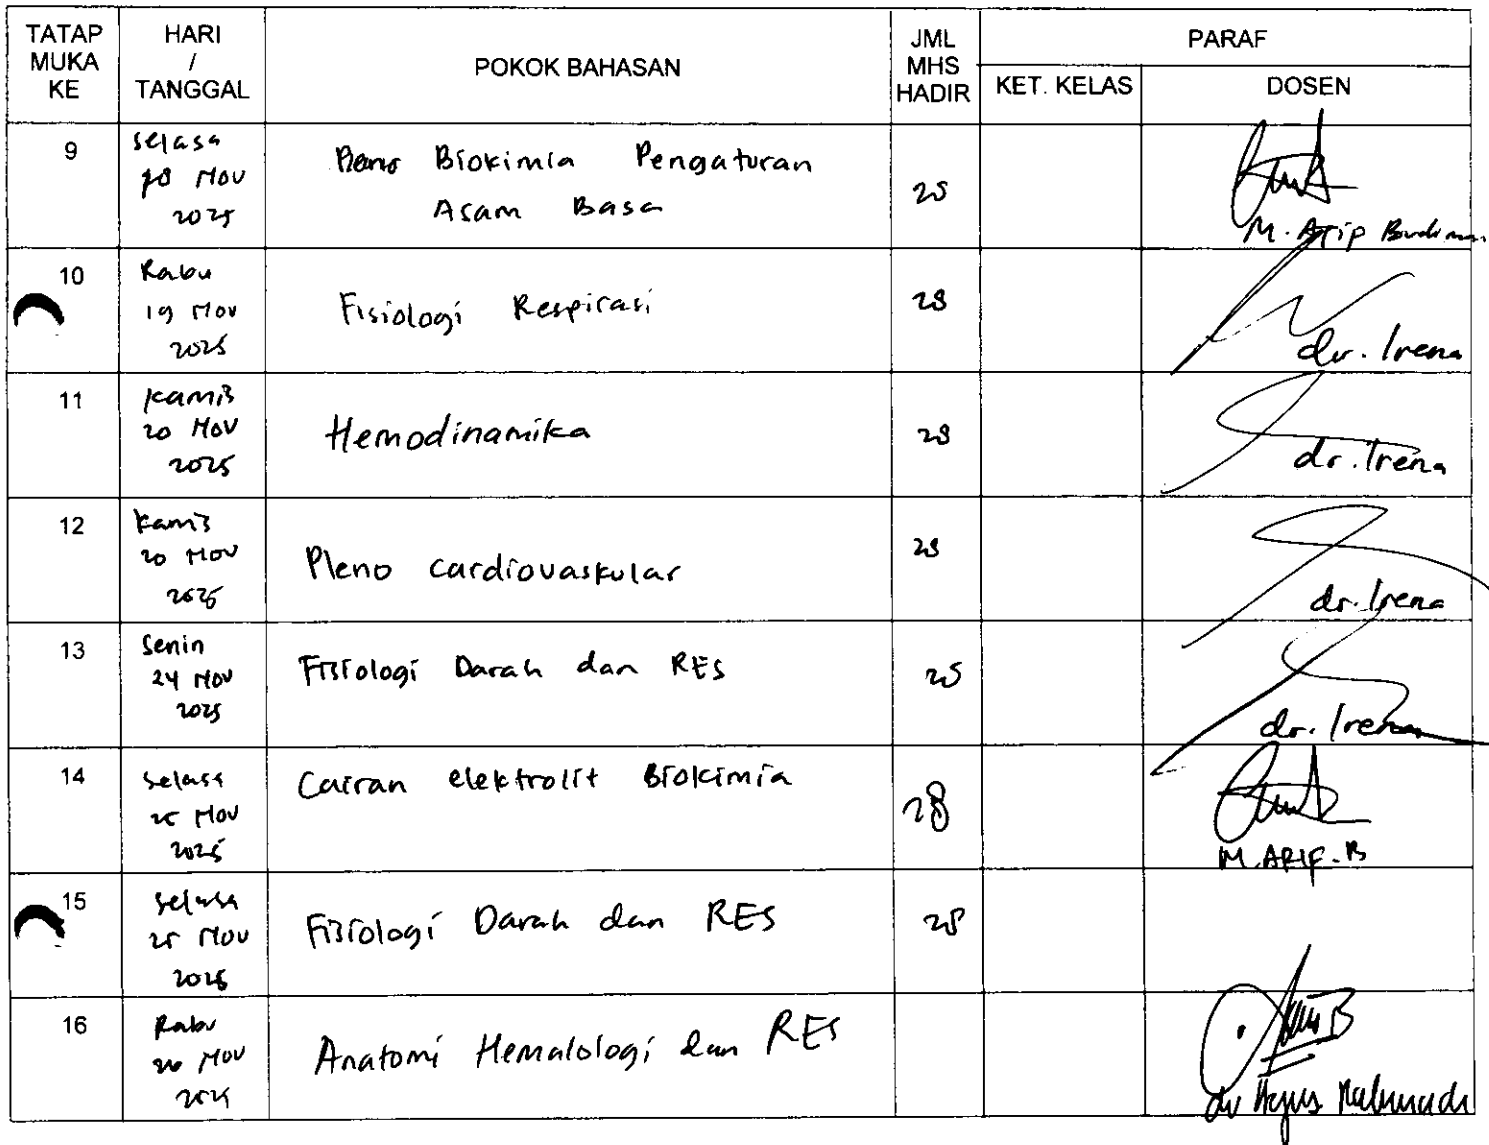 TATAP MUKA KE | HARI / TANGGAL | POKOK BAHASAN | JML MHS HADIR | PARAF
KET. KELAS | DOSEN
9 | Selasa 18 Nov 2025 | Pleno Biokimia Pengaturan Asam Basa | 28 | M. Arip Budiman
10 | Rabu 19 Nov 2025 | Fisiologi Respirasi | 28 | dr. Irena
11 | Kamis 20 Nov 2025 | Hemodinamika | 28 | dr. Irena
12 | Kamis 20 Nov 2025 | Pleno cardiovaskular | 28 | dr. Irena
13 | Senin 24 Nov 2025 | Fisiologi Darah dan RES | 28 | dr. Irena
14 | Selasa 25 Nov 2025 | Cairan elektrolit Biokimia | 28 | M. ARIF. B
15 | Selasa 25 Nov 2025 | Fisiologi Darah dan RES | 28
16 | Rabu 26 Nov 2025 | Anatomi Hematologi dan RES | dr Agus